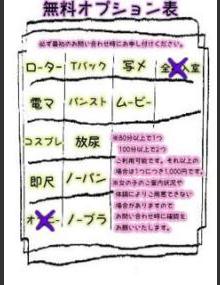 無料オプション表
必ず最初のお問い合わせ時にお申し付けください。
ローター Tバック 写メ 全 入室
電マ パンスト ムービー
コスプレ 放尿
即尺 ノーパン
オ ニー ノーブラ
※80分以上で1つ
100分以上で2つ
ご利用可能です。それ以上の
場合は1つにつき1,000円です。
※女の子のご案内状況や
体調によりご用意できない
場合がありますので
お問い合わせ時に確認を
お願いいたします。